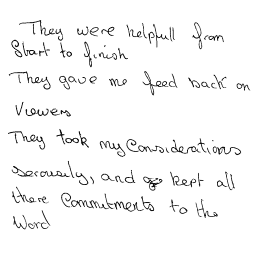 They were helpfull from
Start to finish
They gave me feed back on
Viewers
They took my Considerations
seriously, and kept all
there Commitments to the
Word